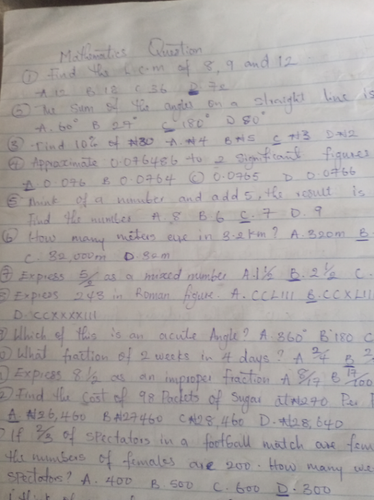 Mathematics Question
① Find the L.C.M of 8, 9 and 12
A. 12 B. 18 C. 36 D. 72
② The sum of the angles on a straight line is
A. 60° B 24° C 180° D 80°
③ Find 10% of ₦30 A. ₦4 B ₦5 C ₦3 D. ₦2
④ Approximate 0.076486 to 2 significant figures
A 0.076 B 0.0764 C 0.0765 D 0.0766
⑤ Think of a number and add 5, the result is
find the number A. 8 B 6 C. 7 D. 9
⑥ How many meters are in 3.2km? A. 320m B.
C. 32,000m D. 32m
Express 5/2 as a mixed number A. 1½ B. 2½ C.
Express 243 in Roman figure. A. CCLIII B. CCXLII
D. CCXXXXIII
Which of this is an acute Angle? A. 360° B. 180 C
What fraction of 2 weeks in 4 days? A 2/4 B
Express 8½ as an improper fraction A 8/17 B 17/100
Find the cost of 98 Packets of Sugar at ₦290 Per
A. ₦26,460 B ₦27460 C ₦28,460 D. ₦28,640
? If 2/3 of spectators in a football match are
the numbers of females are 200. How many
spectators? A. 400 B 500 C. 600 D. 300